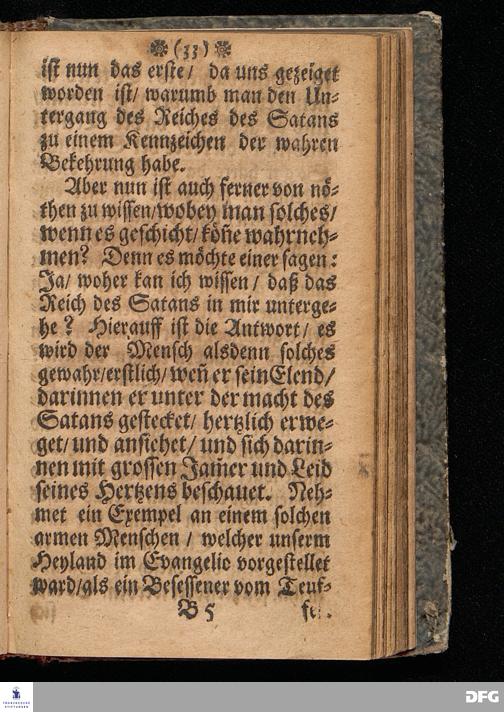 ❁ (33) ❁
ist nun das erste/ da uns gezeiget
worden ist/ warumb man den Un-
tergang des Reiches des Satans
zu einem Kennzeichen der wahren
Bekehrung habe.
Aber nun ist auch ferner von nö-
then zu wissen/wobey man solches/
wenn es geschicht/ köñe wahrneh-
men? Denn es möchte einer sagen:
Ja/ woher kan ich wissen/ daß das
Reich des Satans in mir unterge-
he? Hierauff ist die Antwort/ es
wird der Mensch alsdenn solches
gewahr/erstlich/ weñ er sein Elend/
darinnen er unter der macht des
Satans gestecket/ hertzlich erwe-
get/ und ansiehet/ und sich darin-
nen mit grossen Jam̃er und Leid
seines Hertzens beschauet. Neh-
met ein Exempel an einem solchen
armen Menschen / welcher unserm
Heyland im Evangelio vorgestellet
ward/als ein Besessener vom Teuf-
B 5
FRANCKESCHE
STIFTUNGEN
DFG